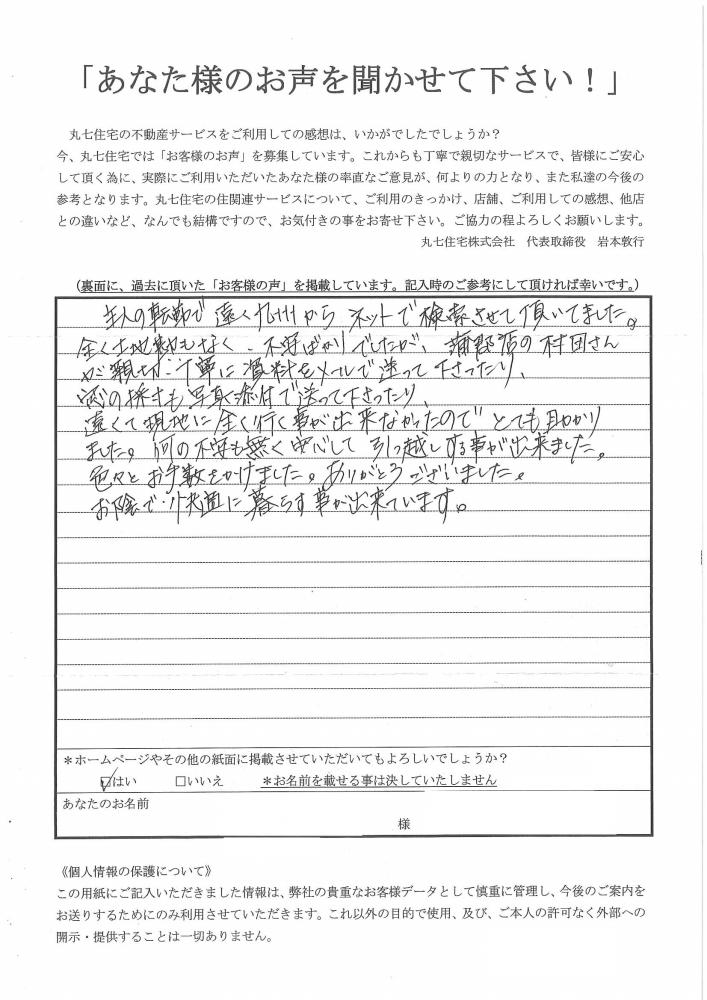 「あなた様のお声を聞かせて下さい！」
丸七住宅の不動産サービスをご利用しての感想は、いかがでしたでしょうか？
今、丸七住宅では「お客様のお声」を募集しています。これからも丁寧で親切なサービスで、皆様にご安心
して頂く為に、実際にご利用いただいたあなた様の率直なご意見が、何よりの力となり、また私達の今後の
参考となります。丸七住宅の住関連サービスについて、ご利用のきっかけ、店舗、ご利用しての感想、他店
との違いなど、なんでも結構ですので、お気付きの事をお寄せ下さい。ご協力の程よろしくお願いします。
丸七住宅株式会社 代表取締役 岩本敦行
（裏面に、過去に頂いた「お客様の声」を掲載しています。記入時のご参考にして頂ければ幸いです。）
主人の転勤で 遠く九州から ネットで検索させて頂いてました。
全く土地勘もなく、不安ばかりでしたが、蒲野店の村田さん
が親切・丁寧に資料をメールで送って下さったり、
の様子も写真添付で送って下さったり、
遠くて現地に全く行く事が出来なかったので とても助かり
ました。何の不安も無く安心して 引っ越しする事が出来ました。
色々とお手数をかけました。ありがとうございました。
お陰で・快適に暮らす事が出来ています。
＊ホームページやその他の紙面に掲載させていただいてもよろしいでしょうか？
☑はい □いいえ ＊お名前を載せる事は決していたしません
あなたのお名前
様
《個人情報の保護について》
この用紙にご記入いただきました情報は、弊社の貴重なお客様データとして慎重に管理し、今後のご案内を
お送りするためにのみ利用させていただきます。これ以外の目的で使用、及び、ご本人の許可なく外部への
開示・提供することは一切ありません。